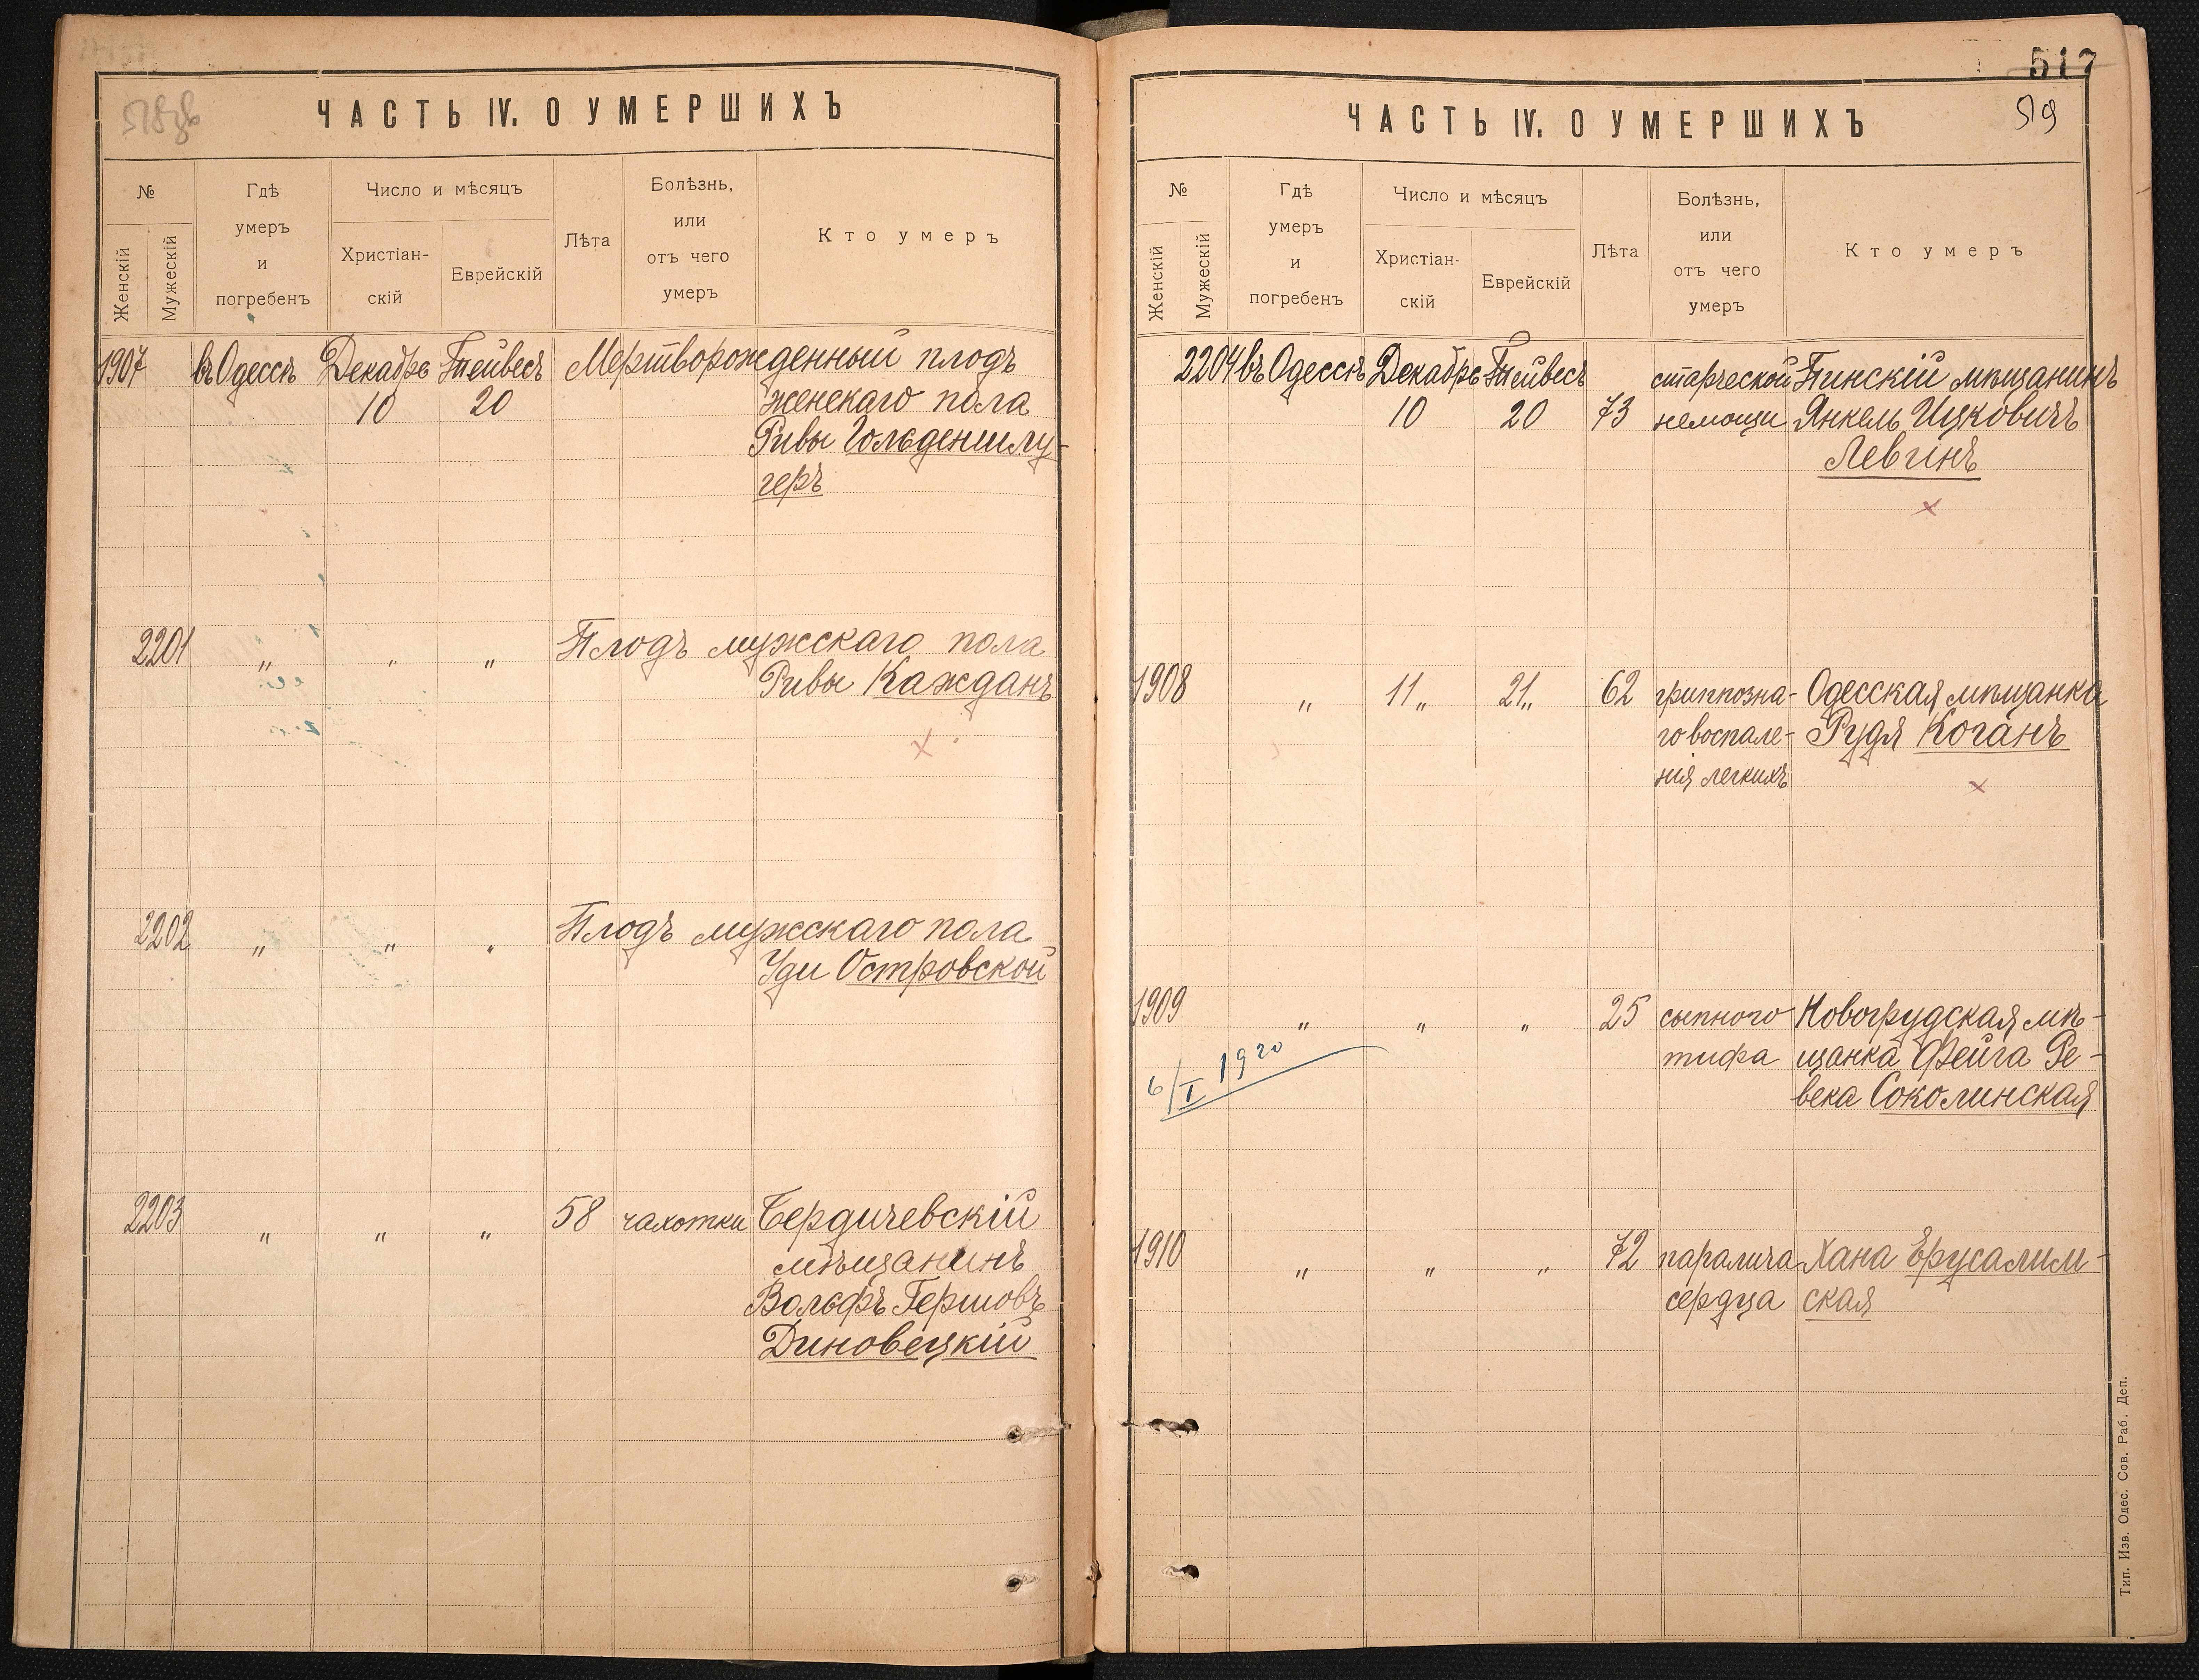 518об
ЧАСТЬ IV. О УМЕРШИХЪ
№
Женскій
Мужескій
Гдѣ
умеръ
и
погребенъ
Число и мѣсяцъ
Христіан-
скій
Еврейскій
Лѣта
Болѣзнь,
или
отъ чего
умеръ
Кто умеръ
1907 въ Одессѣ Декабрь Тейвесъ Мертворожденный плодъ
10 20 женскаго пола
Ривы Гольденшлу-
геръ
2201 " " " Плодъ мужскаго пола
Ривы Кажданъ
х
2202 " " " Плодъ мужскаго пола
Уди Островской
2203 " " " 58 чахотки Бердичевскій
мѣщанинъ
Вольфъ Гершовъ
Диновецкій
517
519
ЧАСТЬ IV. О УМЕРШИХЪ
№
Женскій
Мужескій
Гдѣ
умеръ
и
погребенъ
Число и мѣсяцъ
Христіан-
скій
Еврейскій
Лѣта
Болѣзнь,
или
отъ чего
умеръ
Кто умеръ
2204 въ Одессѣ Декабрь Тейвесъ старческой Пинскій мѣщанинъ
10 20 73 немощи Янкель Ицковичъ
Левинъ
х
1908 " 11 " 21 " 62 гриппозна- Одесская мѣщанка
го воспале- Рудя Коганъ
нія легкихъ
х
1909 " " " 25 сыпного Новогрудская мѣ-
тифа щанка Фейга Ре-
века Соколинская
6/I 1920
1910 " " " 72 паралича Хана Ерусалим-
сердца ская
Тип. Изв. Одес. Сов. Раб. Деп.